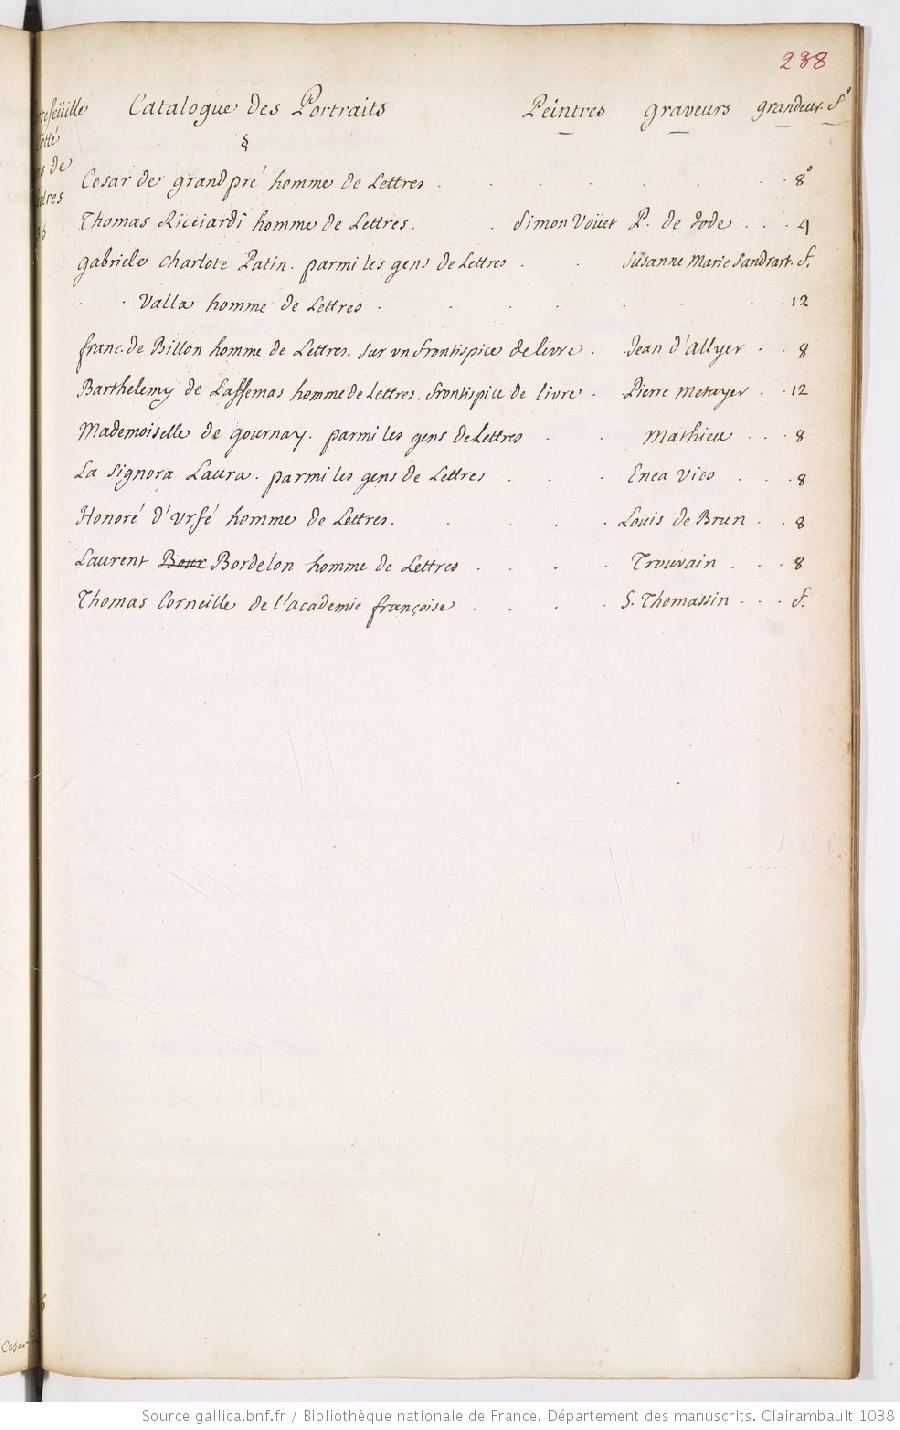 238
Catalogue des Portraits Peintres graveurs grandeur. f°
§
Cesar de grandpré homme de Lettres . . . . . . . 8°
Thomas Ricciardi homme de Lettres. . Simon Voüet P. de Jode . . . 4
gabriele charlote Patin. parmi les gens de Lettres . . Susanne Marie Sandrart. f.
. . Valla homme de Lettres . . . . . . 12
franc. de Billon homme de Lettres. sur un frontispice de livre . Jean d'Allyer . . 8
Barthelemy de Laffemas homme de Lettres. frontispice de livre . Pierre Metayer . . 12
Mademoiselle de gournay. parmi les gens de Lettres . . Mathieu . . . 8
La Signora Laura. parmi les gens de Lettres . . . Enea Vico . . . 8
Honoré d'Urfé homme de Lettres. . . . . Louis de Brun . . 8
Laurent Bour Bordelon homme de Lettres . . . . Trouvain . . . 8
Thomas Corneille de l'academie françoise . . . . S. Thomassin . . . f.
Source gallica.bnf.fr / Bibliothèque nationale de France. Département des manuscrits. Clairambault 1038